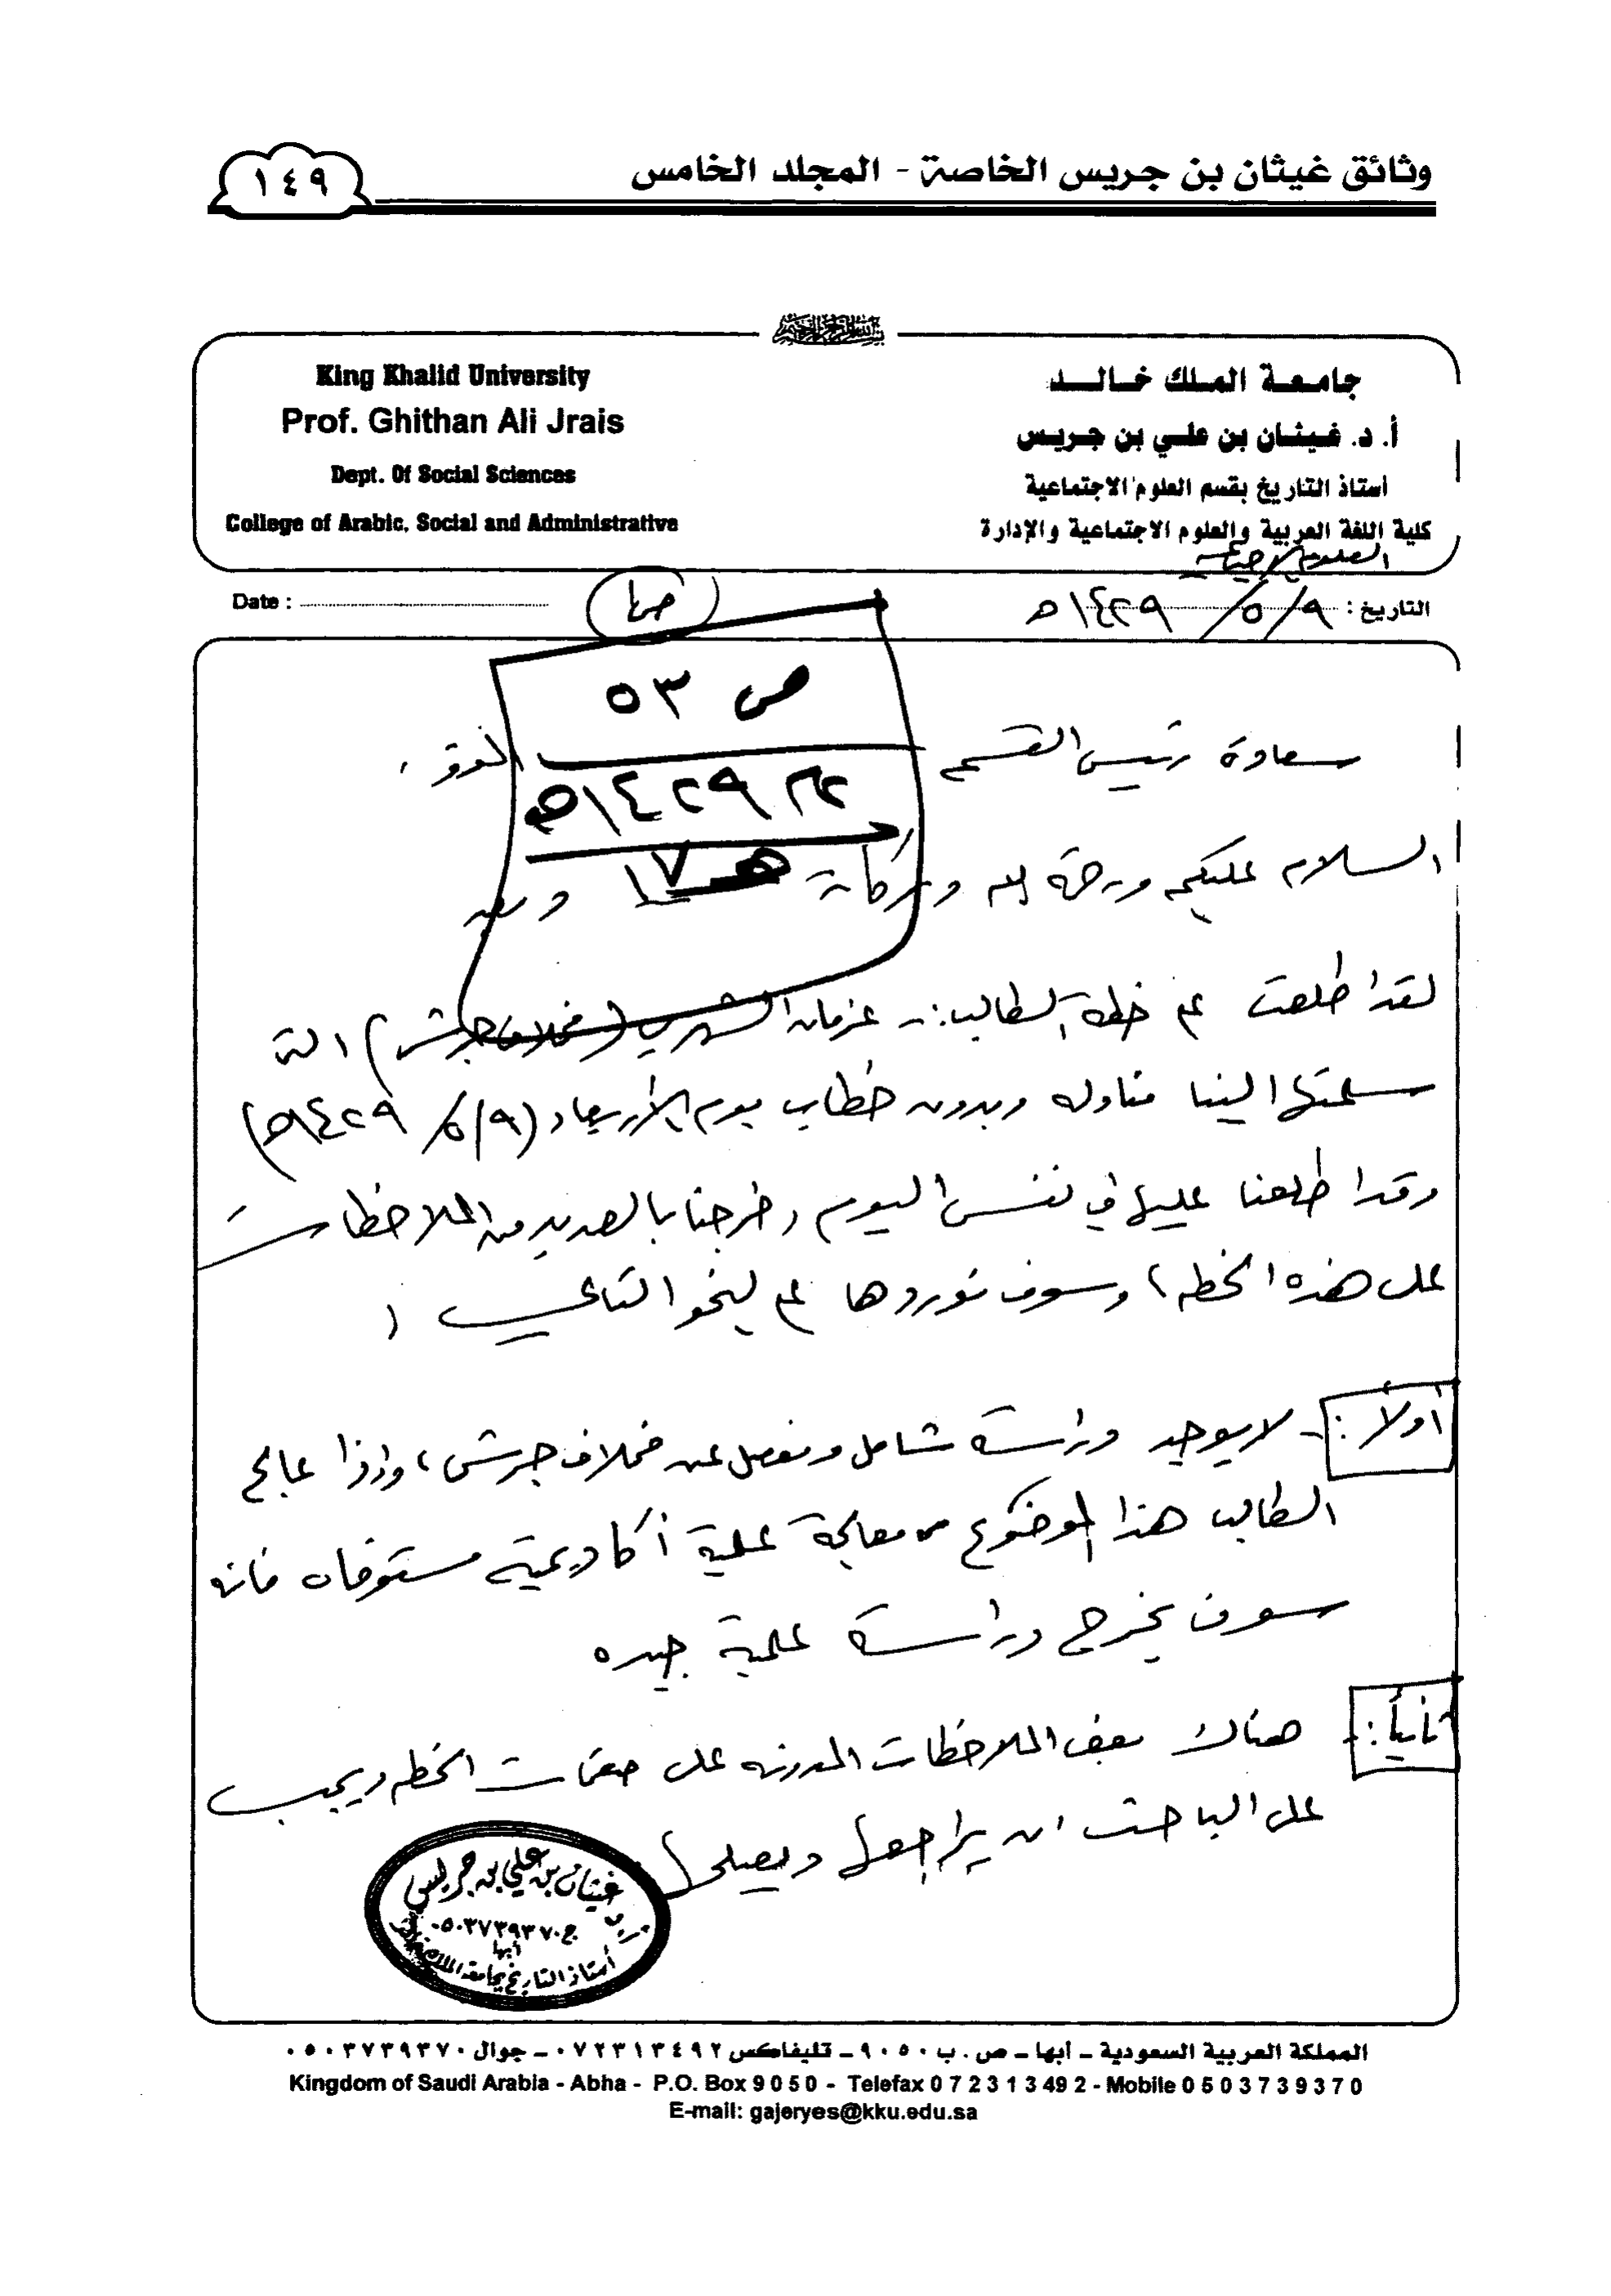 وثائق غيثان بن جريس الخاصة - المجلد الخامس
١٤٩
جامعة الملك خالد
أ. د. غيثان بن علي بن جريس
أستاذ التاريخ بقسم العلوم الاجتماعية
كلية اللغة العربية والعلوم الاجتماعية والإدارة
King Khalid University
Prof. Ghithan Ali Jrais
Dept. Of Social Sciences
College of Arabic, Social and Administrative
التاريخ : ٩/٥/١٤٢٩هـ
Date :
ص ٥٣
١٤٢٩هـ
سعادة رئيس القسم الموقر ،
السلام عليكم ورحمة الله وبركاته وبعد
لقد اطلعت على خطة الطالب :- عزمان الشهري (مخلاف جرش) التي
سلمتها الينا مناوله وبدون خطاب يوم الأربعاء (٩/٥/١٤٢٩هـ)
وقد اطلعنا عليها في نفس اليوم ، وخرجنا بالعديد من الملاحظات
على هذه الخطه ، وسوف نوردها على النحو التالي :
أولاً :- لا يوجد دراسة شامل ومفصل عن مخلاف جرش ، واذا عالج
الطالب هذا الموضوع معالجة علمية أكاديمية مستوفاه فانه
سوف يخرج دراسة علمية جيده
ثانياً :- هناك بعض الملاحظات المدونه على صفحات الخطه ويجب
على الباحث ان يراجعها ويصلحها
غيثان بن علي بن جريس
ج ٠٥٠٣٧٣٩٣٧٠
أبها
أستاذ التاريخ بجامعة الملك خالد
المملكة العربية السعودية - أبها - ص . ب ٩٠٥٠ - تليفاكس ٠٧٢٣١٣٤٩٢ - جوال ٠٥٠٣٧٣٩٣٧٠
Kingdom of Saudi Arabia - Abha - P.O. Box 9050 - Telefax 072313492 - Mobile 0503739370
E-mail: gajeryes@kku.edu.sa